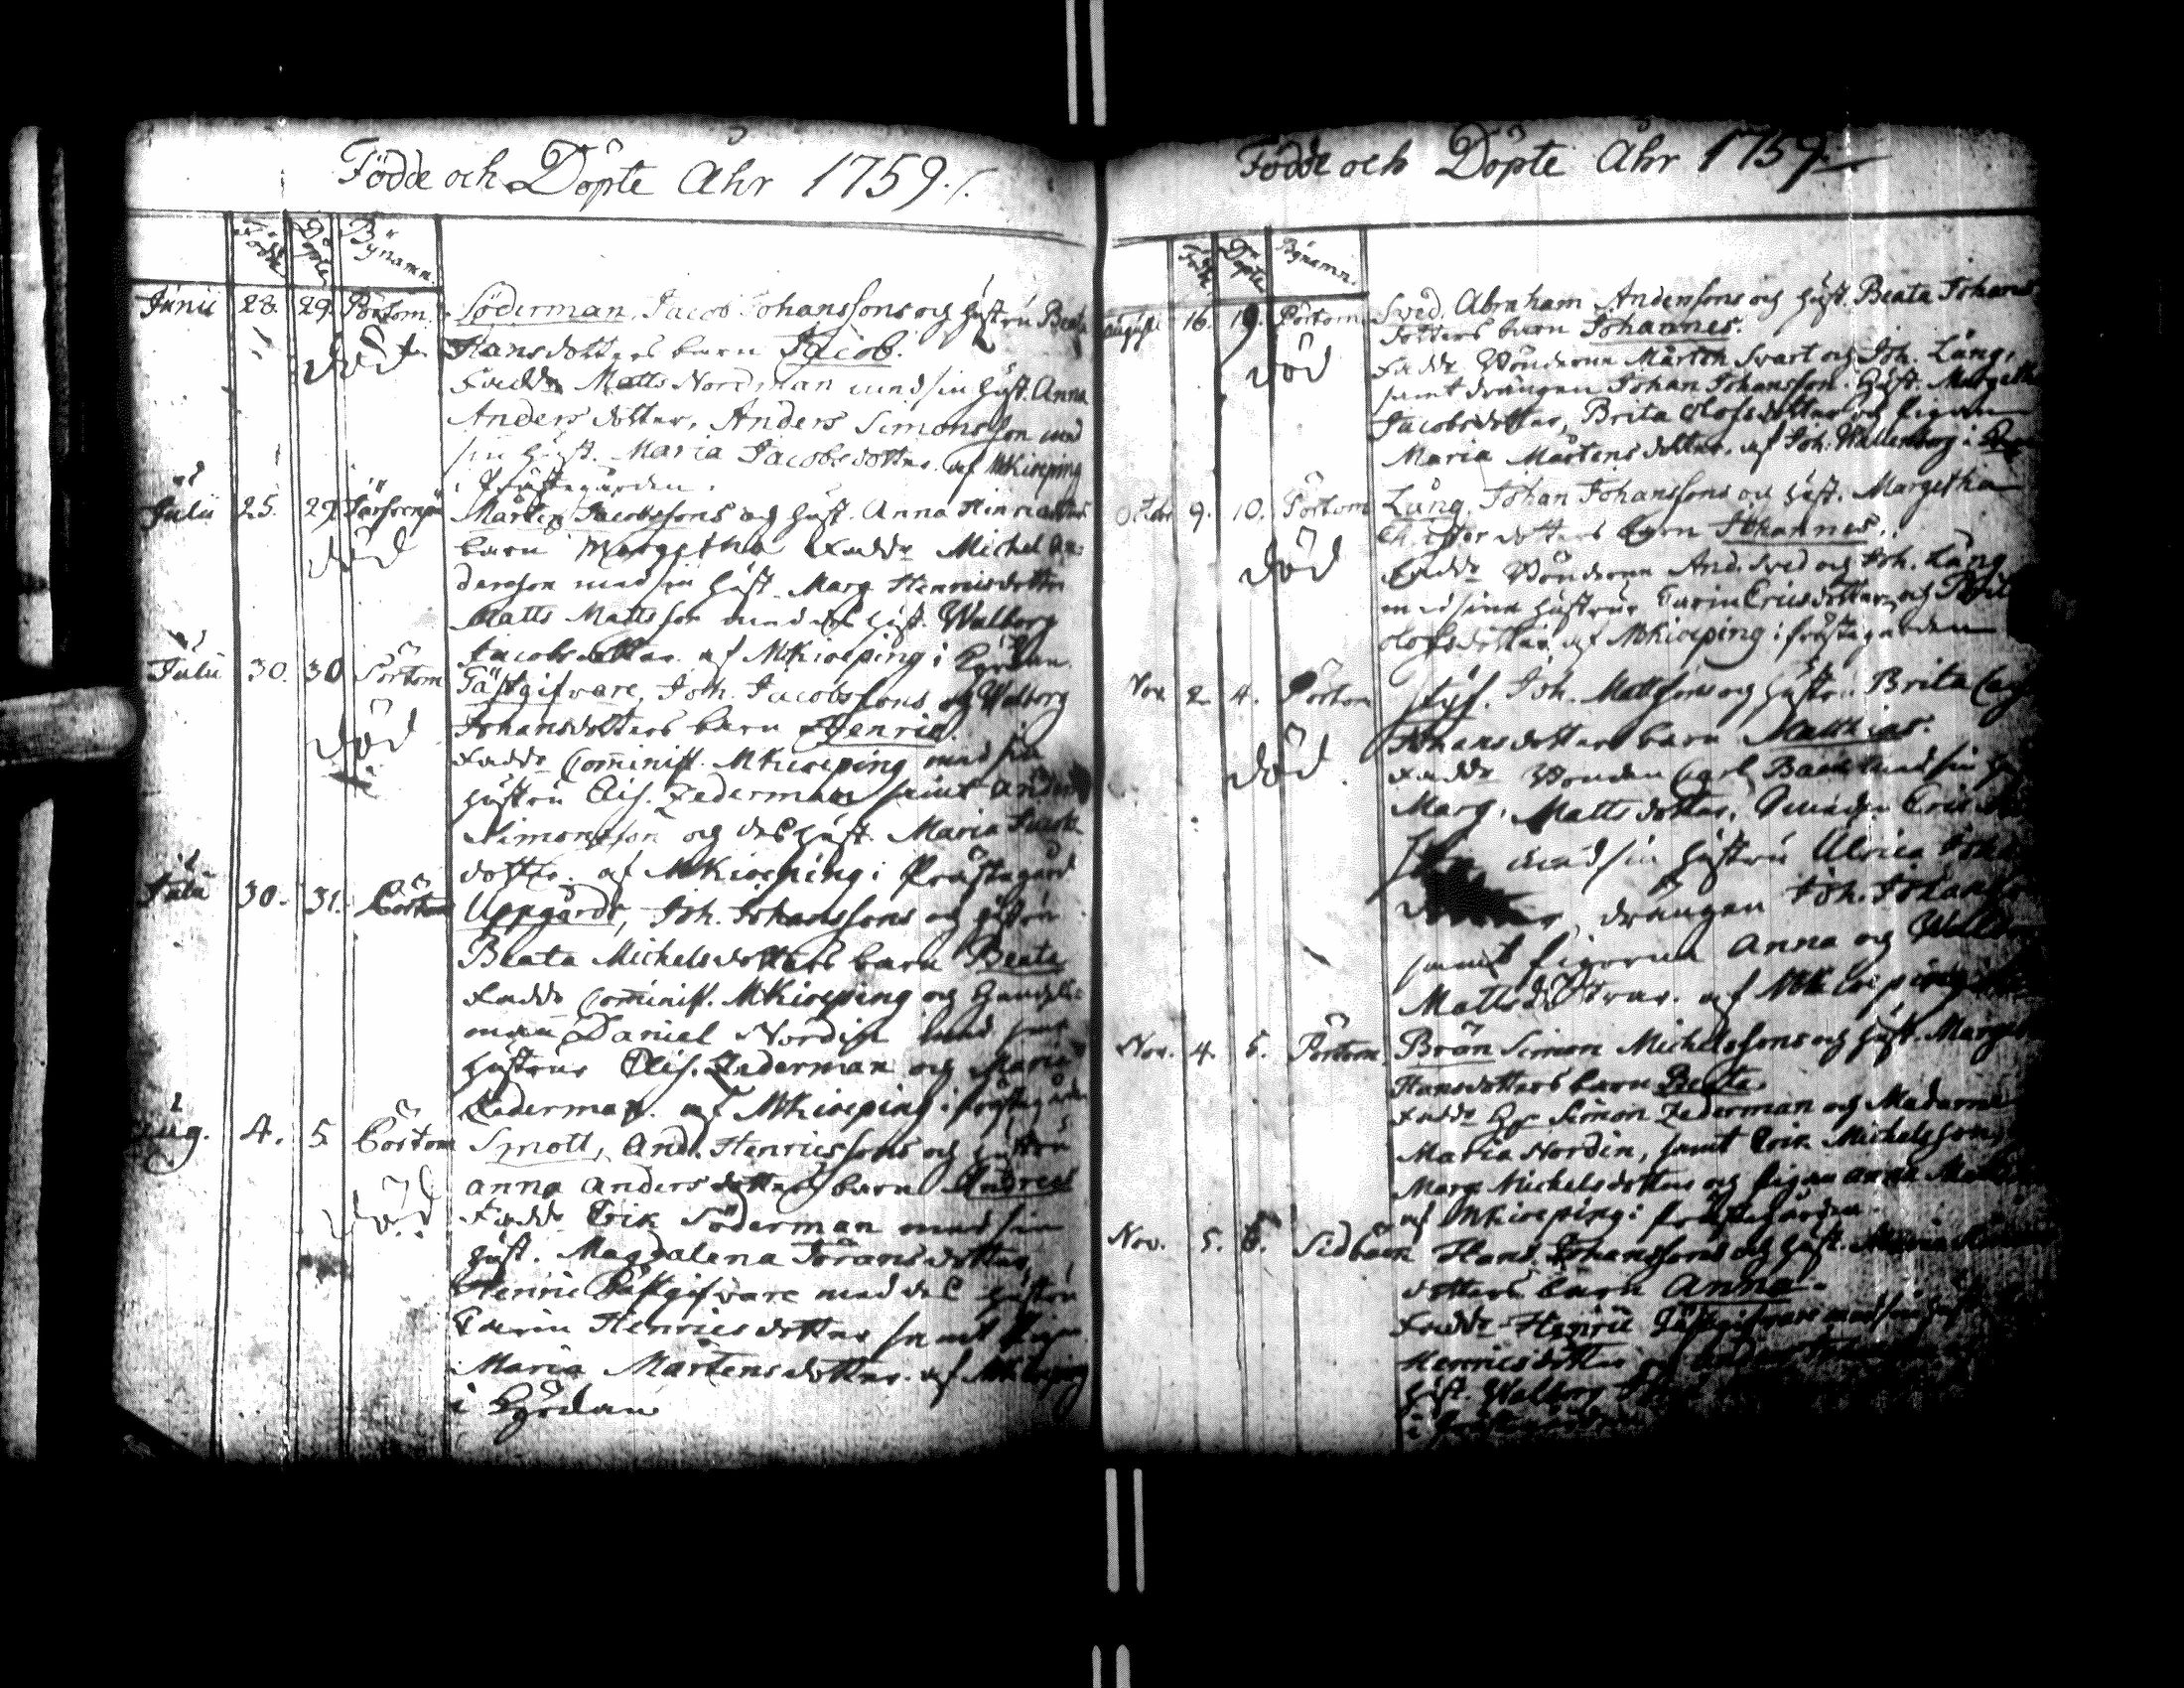 Födde och Döpte Åhr 1759.
Födde Döpte Bynamn
Junii 28. 29. Pörtom Söderman, Jacob Johanssons och Hustru Beata
död Hansdotters barn Jacob.
Fadd. Matts Nordman med sin Hust. Anna
Andersdotter, Anders Simonsson med
sin Hust. Maria Jacobsdotter. af MKioeping
i Prästegården.
Julii 25. 29. Mårten Jacobssons och Hust. Anna Hinricsdotters
död barn Margetha Fadd. Michel An-
dersson med sin Hust. Marg. Henricsdotter
Matts Mattsson med des Hust. Walborg
Jacobsdotter. af MKioeping i Kyrkan
Julii 30. 30 Pörtom Gästgifvare, Joh. Jacobssons och Walborg
död Johansdotters barn Henric.
Fadd. Comminist. MKioeping med sin
Hustru Elis. Zederman samt Anders
Simonsson och des Hust. Maria Jacobs-
dotter. af MKioeping i Prästegård
Julii 30. 31. Pörtom Uppgårds, Joh. Johanssons och Hustru
Beata Michelsdotters barn Beata
Fadd. Comminist. MKioeping och Handels-
man Daniel Nordin med sina
Hustrur Elis. Zederman och Maria
Zederman. af MKioeping i Prästegården
Aug. 4. 5 Pörtom Smott, And. Henricssons och Hustru
död Anna Andersdotters barn Andreas
Fadd. Erik Söderman med sin
Hust. Magdalena Jöransdotter
Henric Gästgifvare med des Hustru
Carin Henricsdotter samt Pigan
Maria Mårtensdotter. af MKioeping
i Kyrkan
Födde och Döpte Åhr 1759.
Födde Döpte Bynamn
August 16. 19. Pörtom Sved. Abraham Anderssons och Hust. Beata Johans-
dotters barn Johannes.
död Fadd. Bönderna Mårten Svart och Joh. Lång,
samt drängen Johan Johansson. Hust. Margetha
Jacobsdotter, Brita Olofsdotter och Pigan
Maria Mårtensdotter. af Joh. Wallenborg i
Octobr 9. 10. Pörtom Lång, Johan Johanssons och Hust. Margetha
Christersdotters barn Johannes.
död Fadd. Bönderna And. Sved och Joh. Lång
med sina Hustrur Carin Ericsdotter och Brita
Olofsdotter. af MKioeping i Prästegården
Nov. 2 4. Pörtom Joh. Mattssons och Hustru Brita
Johansdotters barn Matthias.
död. Fadd. Bonden Carl med sin
Marg. Mattsdotter, Eric
med sin Hustru Ulrica
drängen Joh. Johansson
samt Pigorna Anna och Walborg
Mattsdöttrar. af MKioeping
Nov. 4. 5. Pörtom Brån Simon Michelssons och Hust. Margetha
Hansdotters barn Beata.
Fadd. Hr Simon Zederman och Madame
Maria Nordin, samt Erik Michelsson,
Marg. Michelsdotter och Pigan Anna
af MKioeping i Prästegården.
Nov. 5. 6. Sidbäck Hans Johanssons och Hust. Maria
dotters barn Anna.
Fadd. Henric Gästgifvare med sin Hust.
Henricsdotter
Hust. Walborg